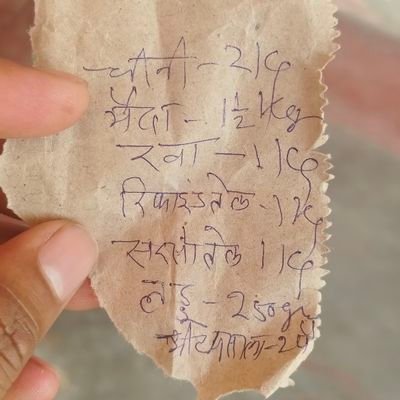 चीनी - 2 kg
मैदा - 1½ kg
रवा - 1 kg
रिफाइंड तेल - 1 kg
सरसों तेल 1 kg
- 250 gr